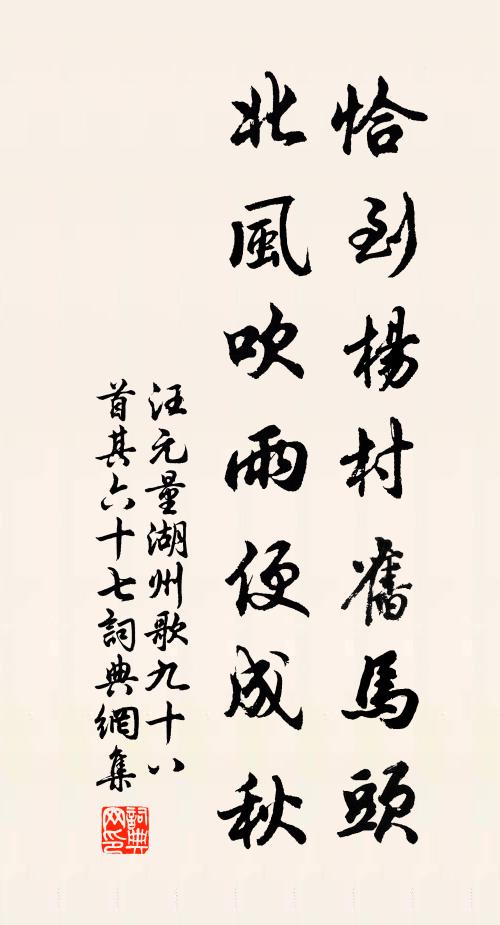 恰到楊村舊馬頭
北風吹雨便成秋
汪元量湖州歌九十八
首其六十七詞典網集
詞典
网印